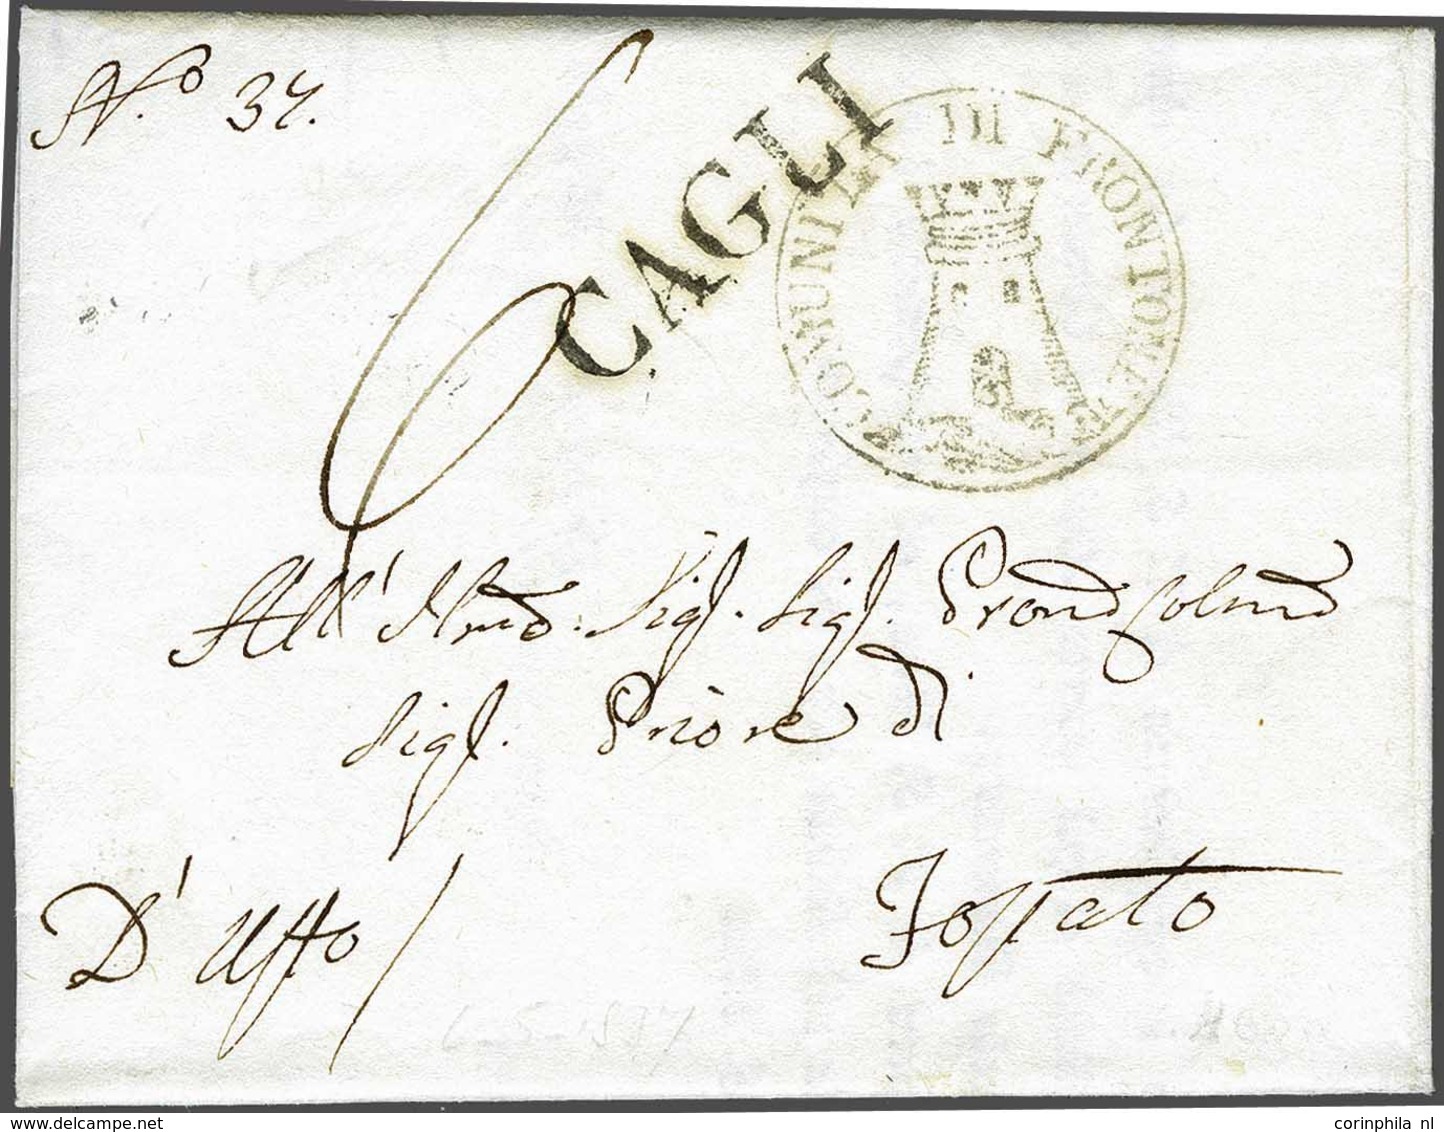 N.o 37.
CAGLI
COMUNITA DI FRONTONE
All' Illmo. Sig.r Sig.r Pron Colmo
Sig.r Priore di
D' Uffo
Fossato
6-5-1837
www.delcampe.net
corinphila nl